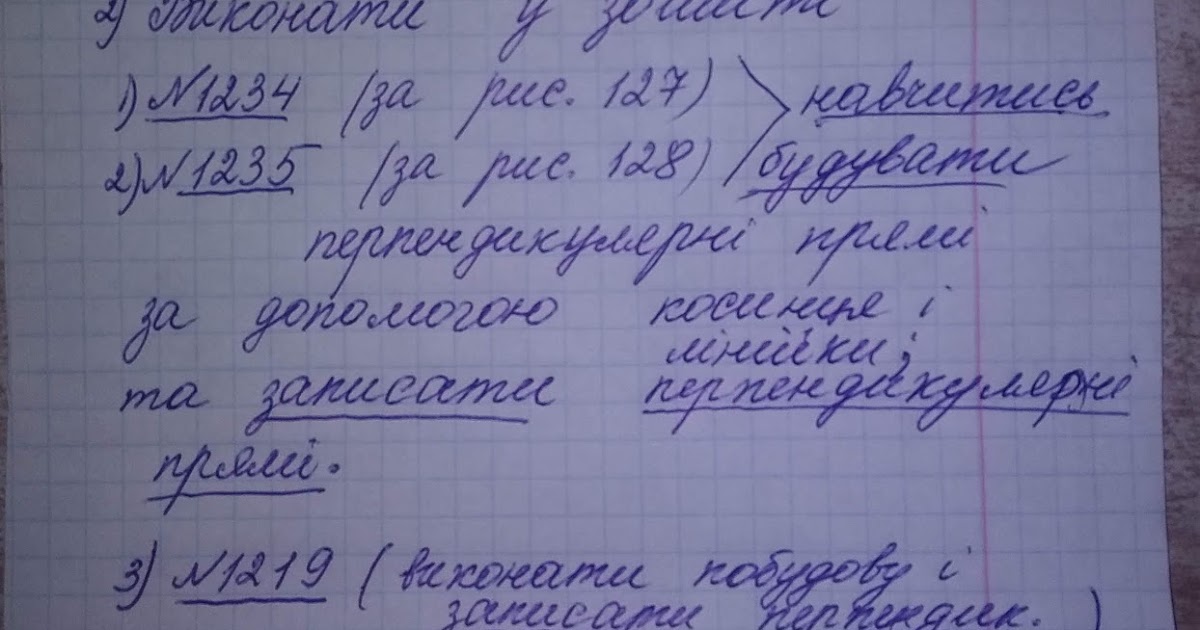 2) Виконати у зошиті
1) №1234 (за рис. 127) > навчитись
2) №1235 (за рис. 128) будувати
перпендикулярні прямі
за допомогою косинця і
лінійки;
та записати перпендикулярні
прямі.
3) №1219 (виконати побудову і
записати перпендик. )